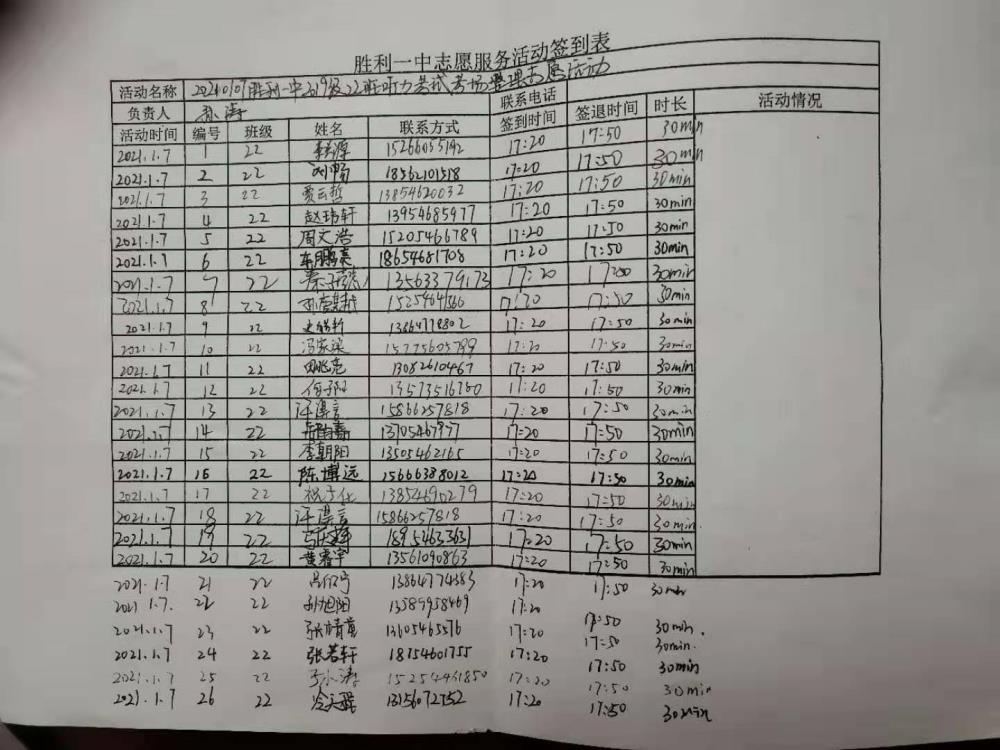 胜利一中志愿服务活动签到表
活动名称 20210107胜利一中2019级22班听力考试考场整理志愿活动
负责人 联系电话
活动时间 编号 班级 姓名 联系方式 签到时间 签退时间 时长 活动情况
2021.1.7 1 22 15266055192 17:20 17:50 30min
2021.1.7 2 22 刘畅 18562101518 17:20 17:50 30min
2021.1.7 3 22 贾云哲 13854620032 17:20 17:50 30min
2021.1.7 4 22 赵玮轩 13954685977 17:20 17:50 30min
2021.1.7 5 22 周文浩 15205466789 17:20 17:50 30min
2021.1.7 6 22 车鹏亮 18654681708 17:20 17:50 30min
2021.1.7 7 22 13563379173 17:20 17:50 30min
2021.1.7 8 22 17:20 17:50 30min
2021.1.7 9 22 17:20 17:50 30min
2021.1.7 10 22 17:20 17:50 30min
2021.1.7 11 22 13082610467 17:20 17:50 30min
2021.1.7 12 22 13573516760 17:20 17:50 30min
2021.1.7 13 22 15866257818 17:20 17:50 30min
2021.1.7 14 22 17:20 17:50 30min
2021.1.7 15 22 李朝阳 13505462165 17:20 17:50 30min
2021.1.7 16 22 陈博远 15666388012 17:20 17:50 30min
2021.1.7 17 22 13854690279 17:20 17:50 30min
2021.1.7 18 22 15866257818 17:20 17:50 30min
2021.1.7 19 22 17:20 17:50 30min
2021.1.7 20 22 黄睿宇 13561090863 17:20 17:50 30min
2021.1.7 21 22 13864774383 17:20 17:50 30min
2021.1.7. 22 22 孙旭阳 13589958469 17:20
2021.1.7 23 22 张精萱 13605465576 17:20 17:50 30min.
2021.1.7 24 22 张若轩 18754601755 17:20 17:50 30min.
2021.1.7 25 22 15254431850 17:20 17:50 30min
2021.1.7 26 22 13156072752 17:20 17:50 30min
17:50 30min